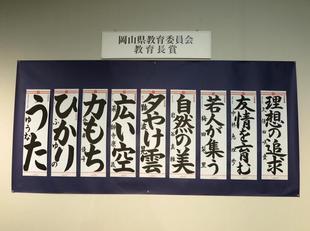 岡山県教育委員会
教育長賞
理想の追求
友情を育む
若人が集う
自然の美
夕やけ雲
広い空
力もち
ひかり
うた